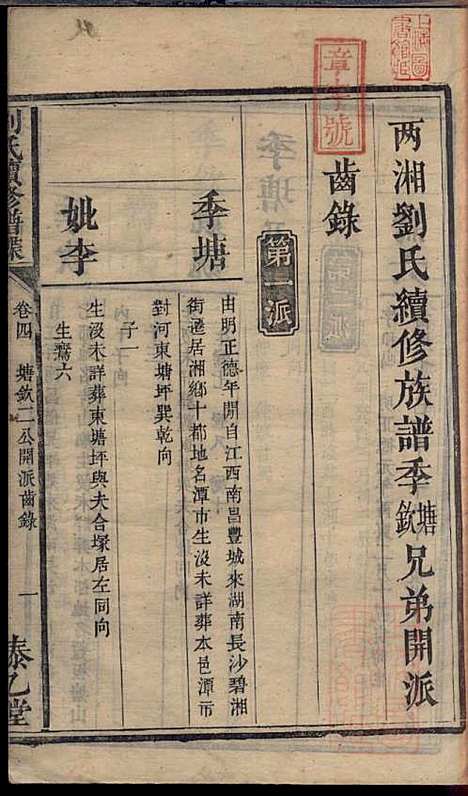 两湘劉氏續修族譜季塘欽兄弟開派
齒錄
第一派
季塘
由明正德年開自江西南昌豐城來湖南長沙碧湘
街遷居湘鄉十都地名潭市生沒未詳葬本邑潭市
對河東塘坪巽乾向
子一
妣李
生沒未詳葬東塘坪與夫合塚居左同向
生鸞六
劉氏續修譜
卷四
塘欽二公開派齒錄
一
泰乙堂
章字號